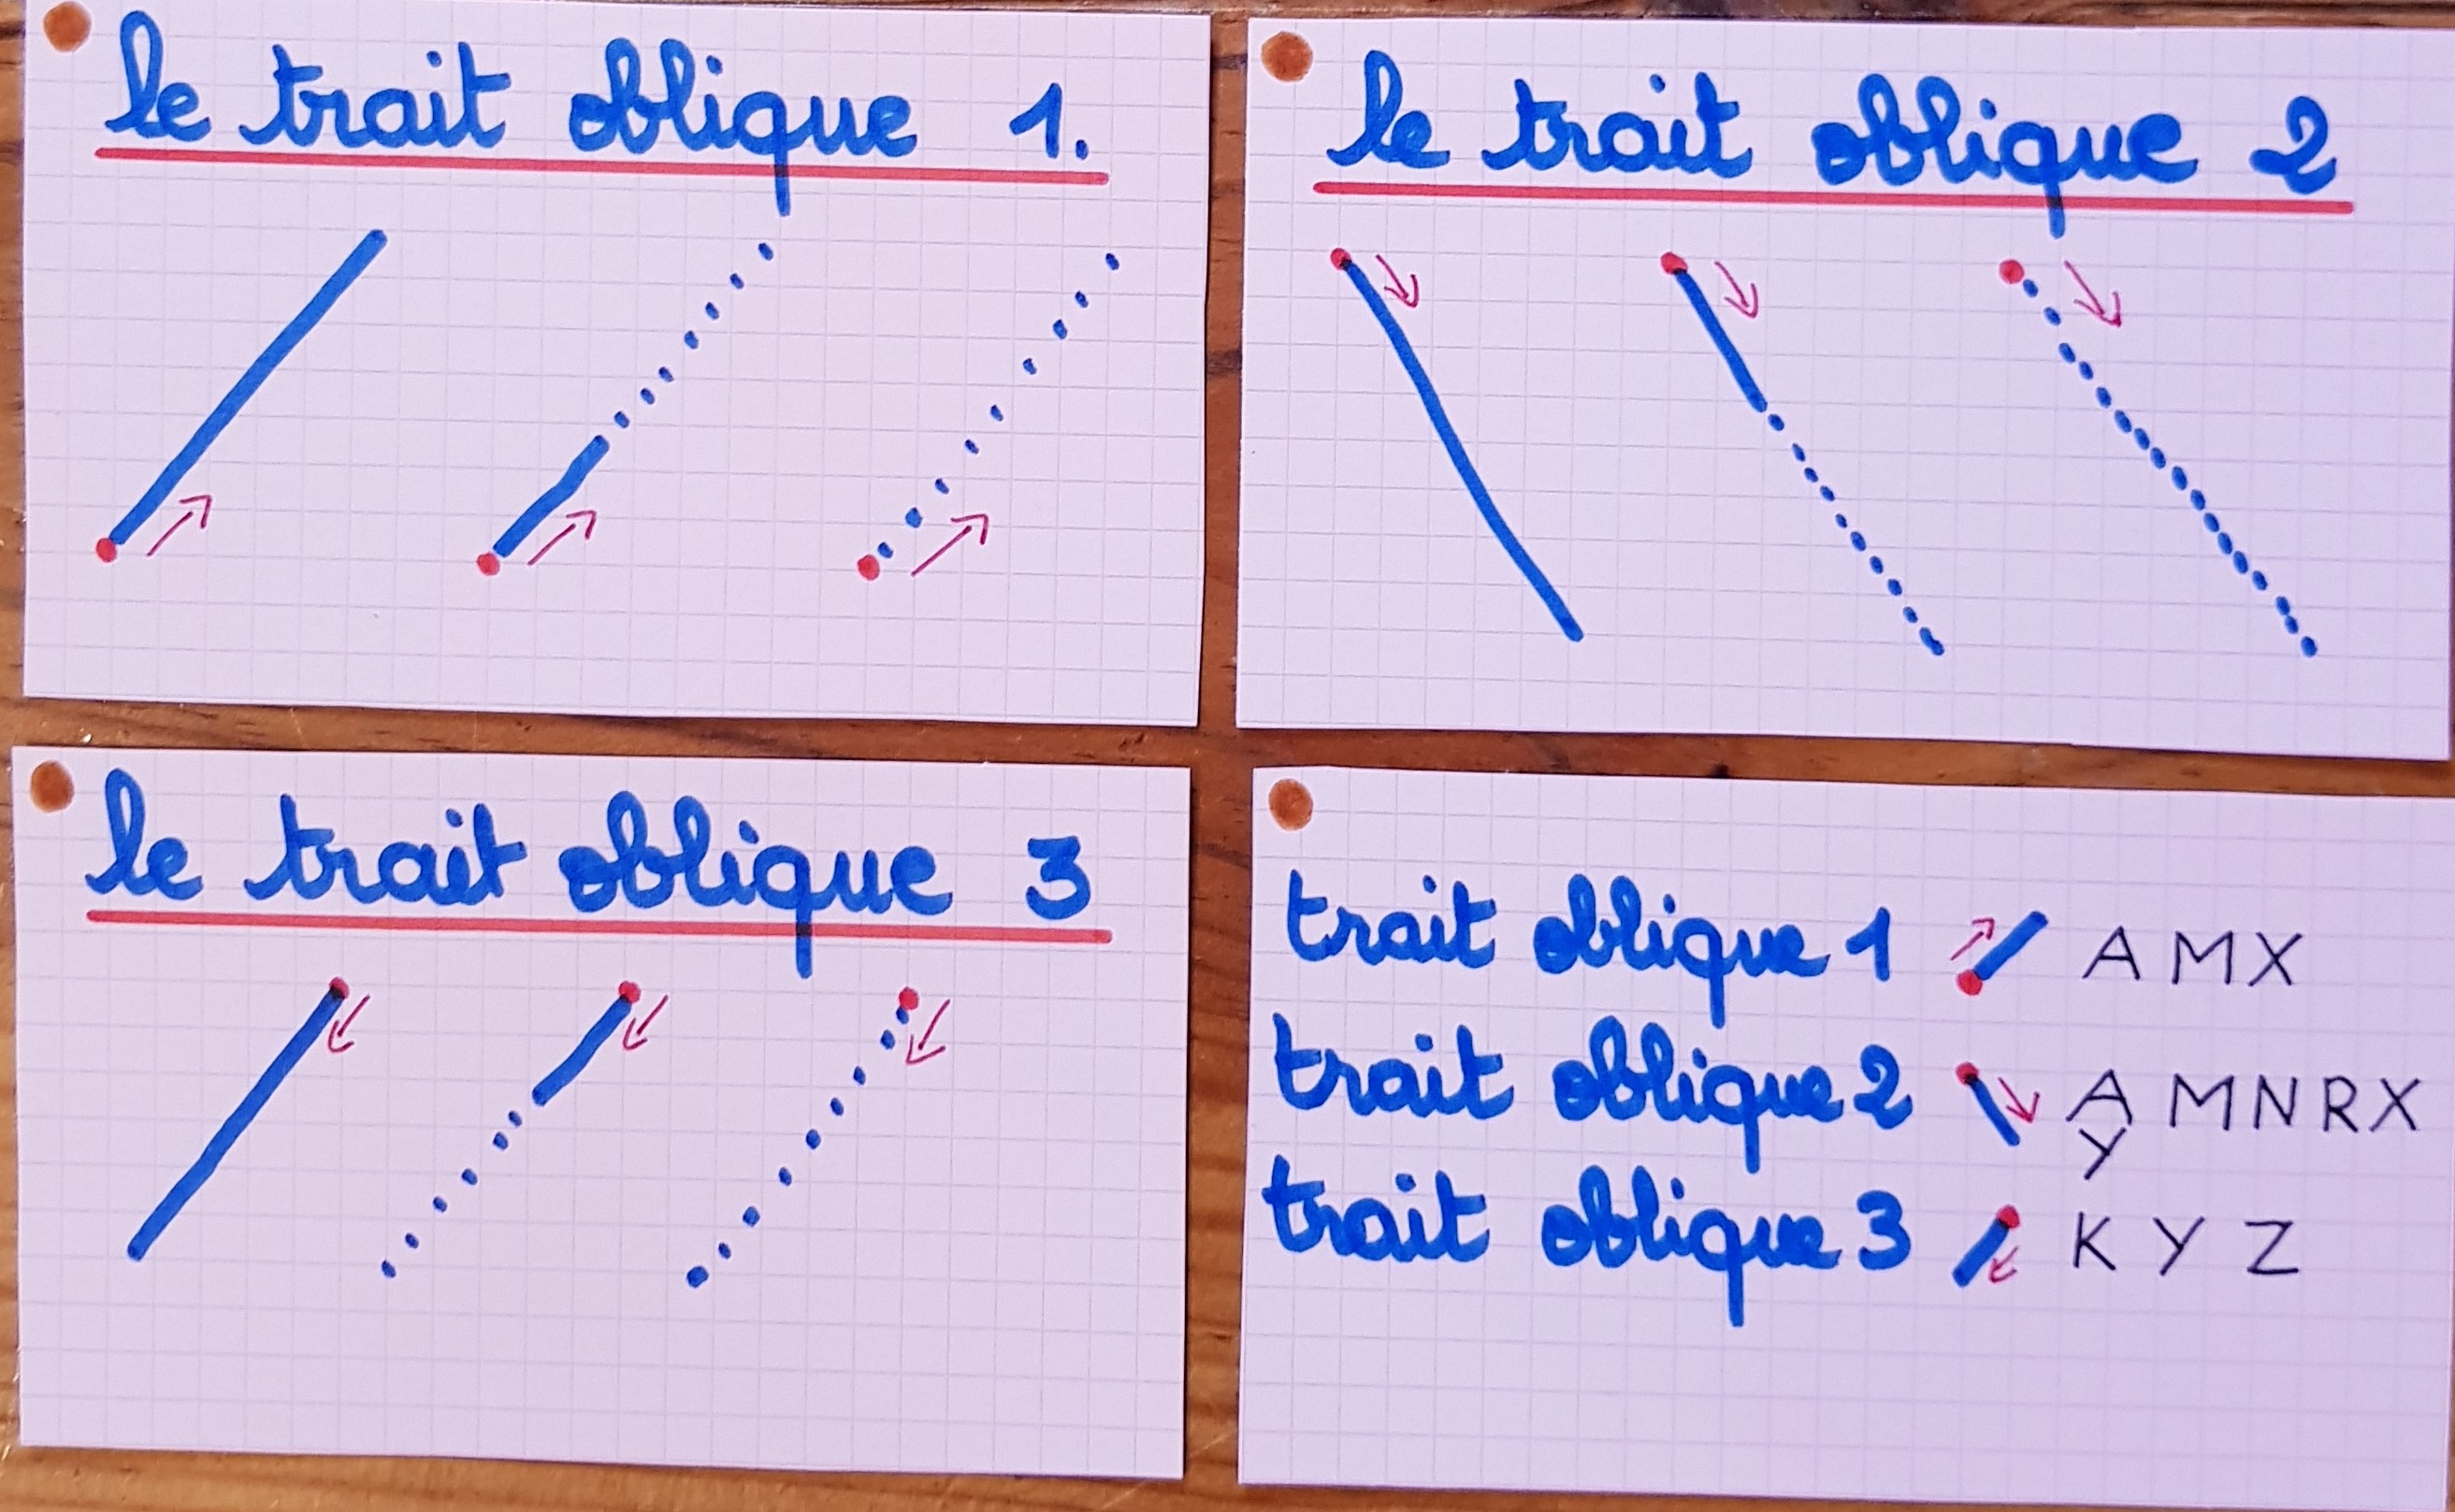 le trait oblique 1.
le trait oblique 2
le trait oblique 3
trait oblique 1 A M X
trait oblique 2 A M N R X
Y
trait oblique 3 K Y Z